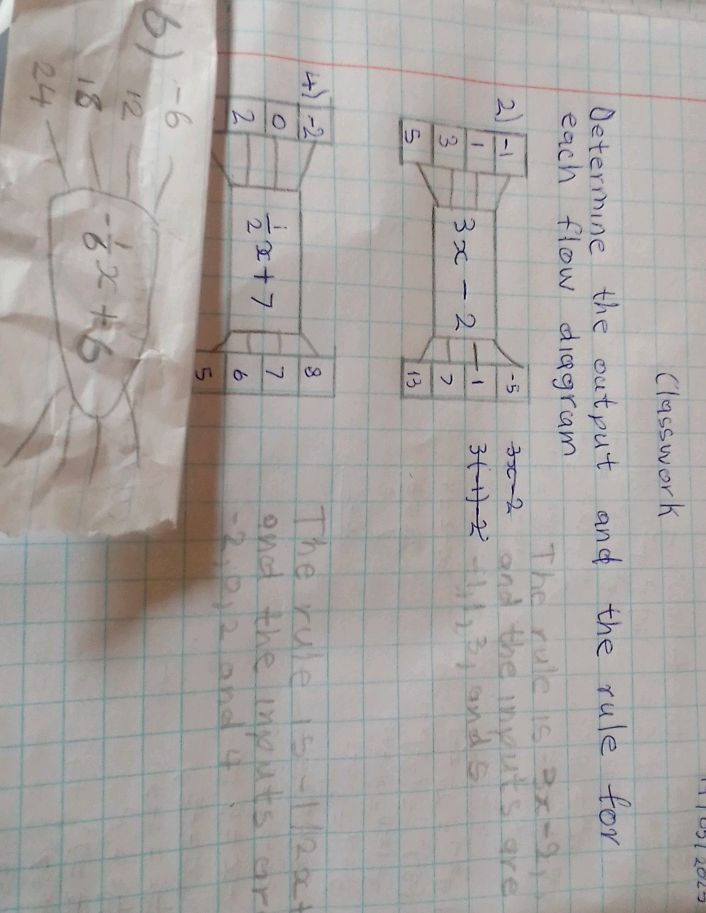 Classwork
Determine the output and the rule for
each flow diagram
2) -1 1 3 5
3x - 2
-5 1 7 13
3x-2
3(-1)-2
The rule is 3x-2,
and the inputs are
-1, 1, 3, and 5
4) -2 0 2
1/2 x + 7
8 7 6 5
The rule is -1/2x+
and the inputs ar
-2, 0, 2 and 4
6) -6
12
18
24
-1/6 x + 6